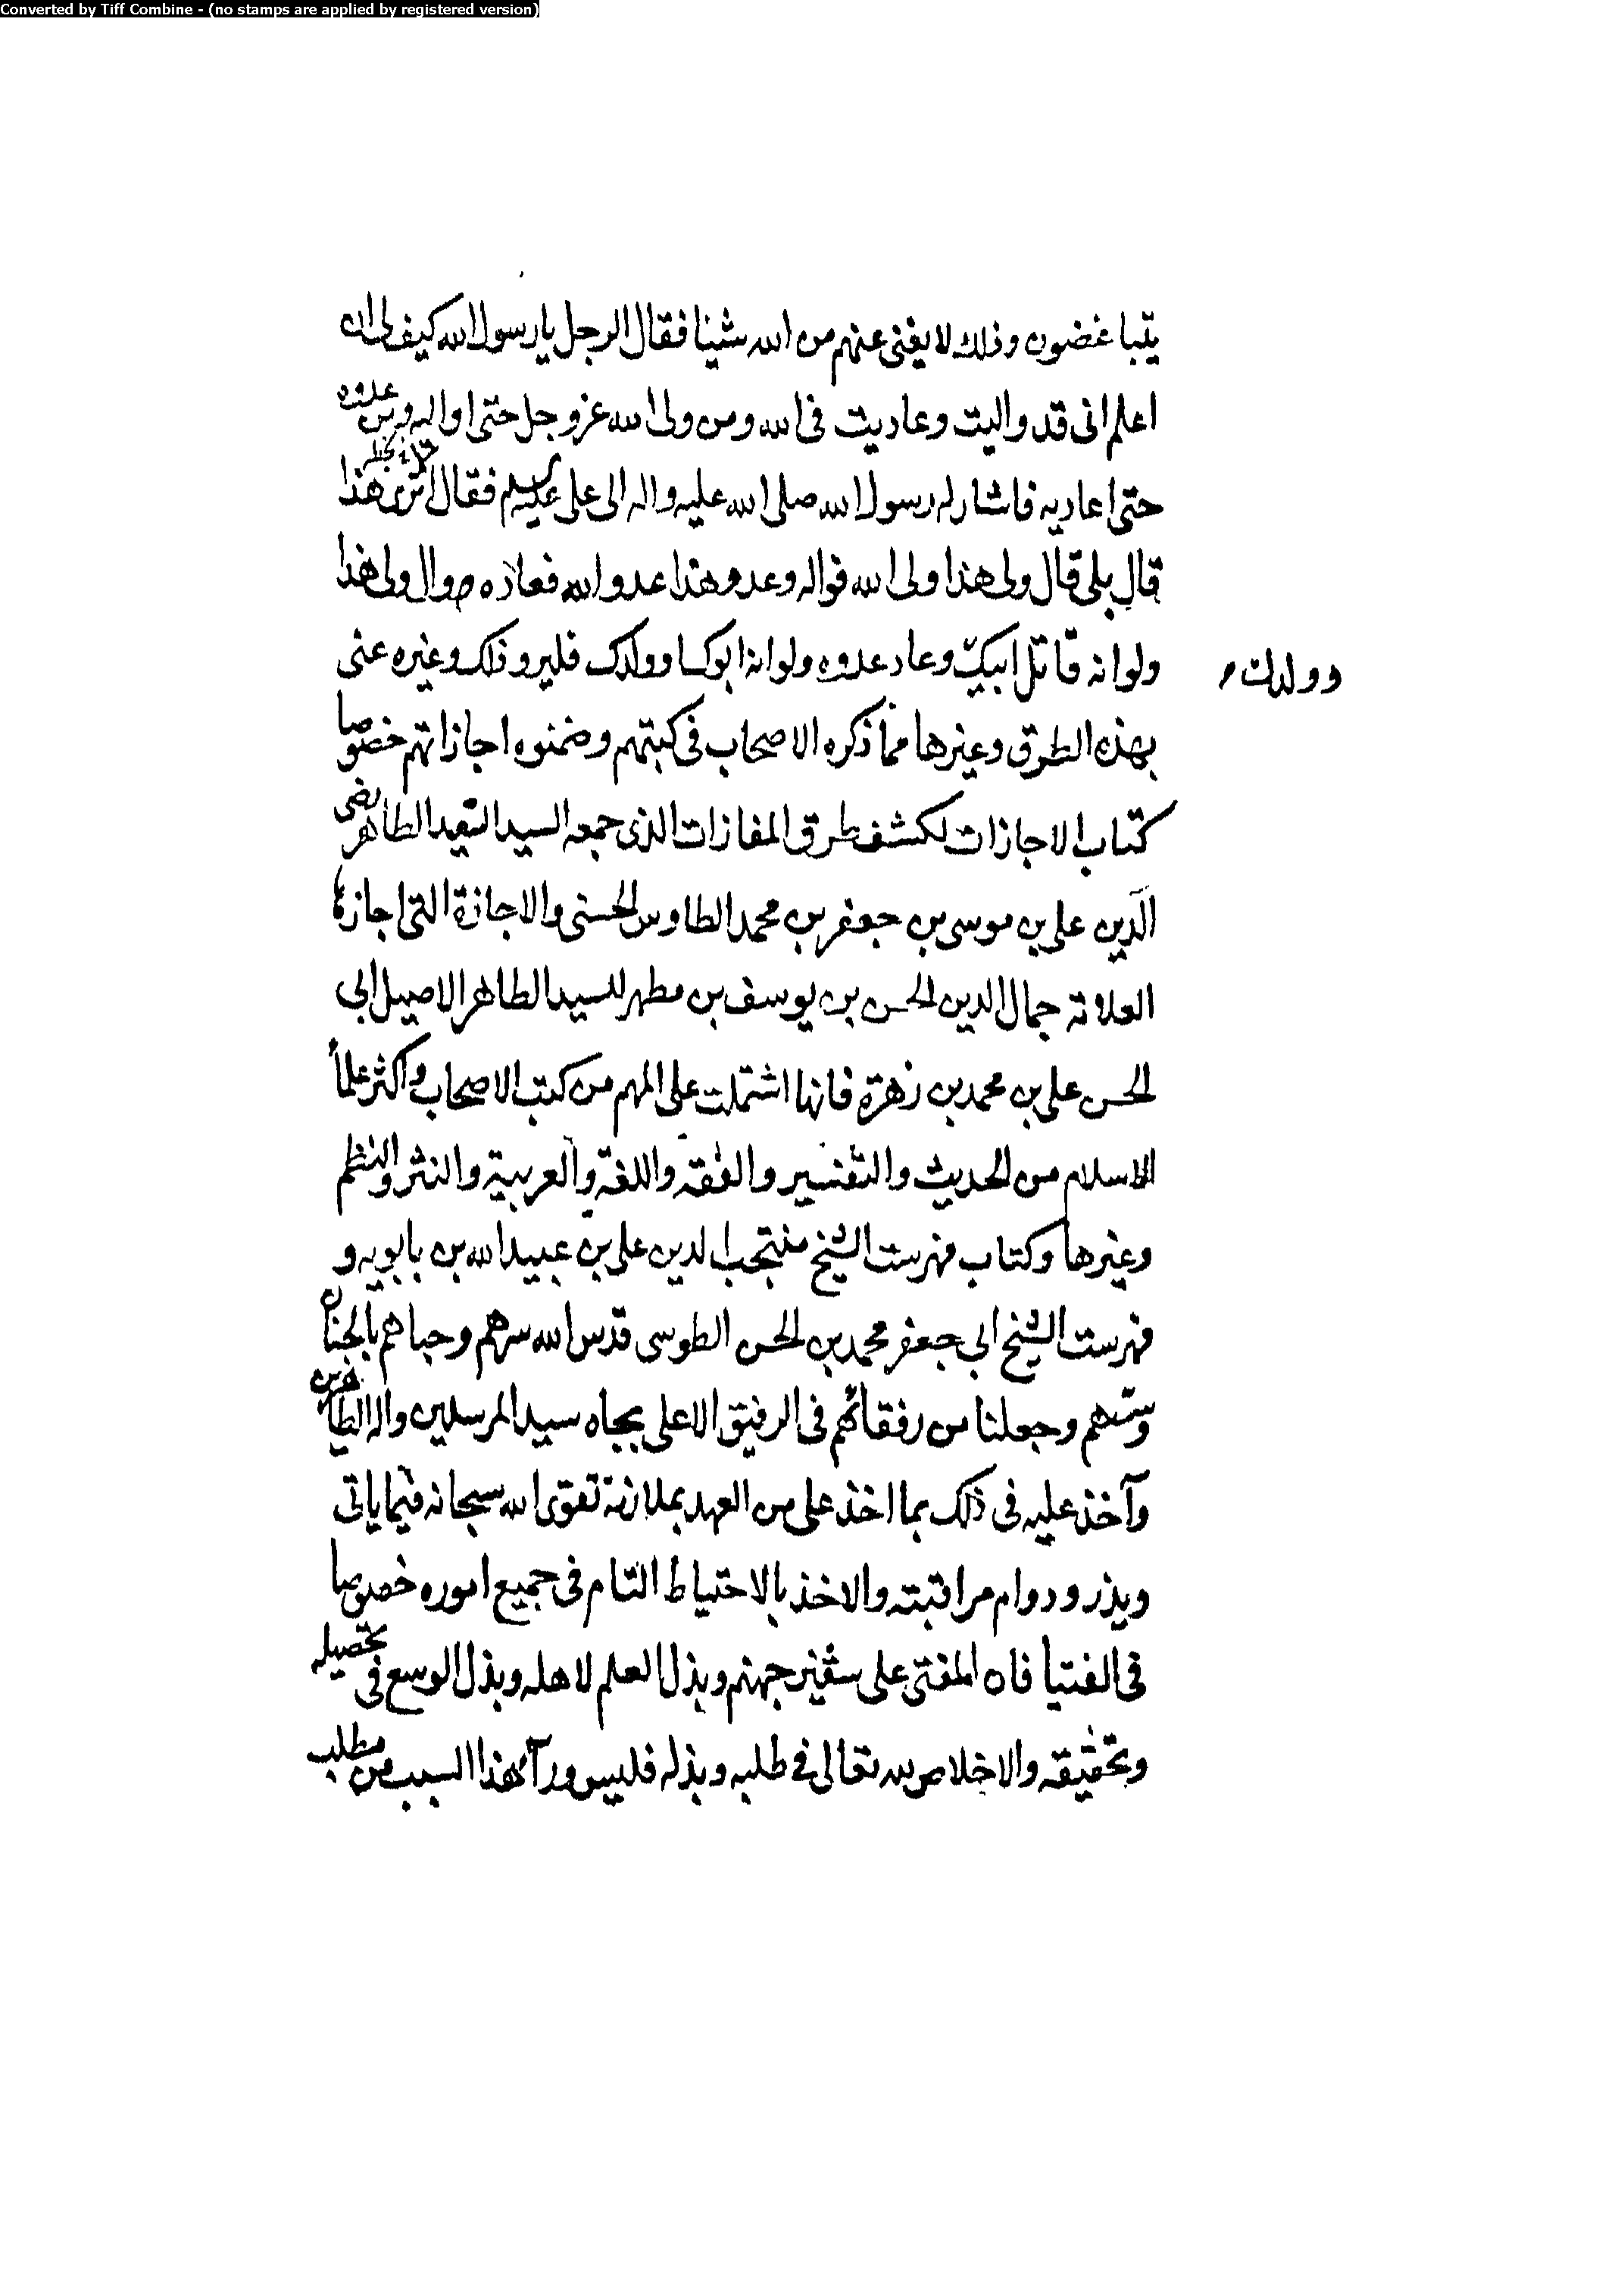 Converted by Tiff Combine - (no stamps are applied by registered version)
يتباغضون وذلك لا يغنى عنهم من الله شيئا فقال الرجل يا رسول الله كيف لى ان
اعلم انى قد واليت وعاديت فى الله ومن ولى الله عز وجل حتى اواليه ومن عدوه
حتى اعاديه فاشار له رسول الله صلى الله عليه واله الى على عليه السلم فقال اترى هذا
قال بلى قال ولى هذا ولى الله فواله وعدو هذا عدو الله فعاده وال ولى هذا
ولو انه قاتل ابيك وعاد عدوه ولو انه ابوك او ولدك فليرو ذلك وغيره عنى
وولدك
بهذه الطرق وغيرها مما ذكره الاصحاب فى كتبهم وضمنوه اجازاتهم خصوصا
كتاب الاجازات لكشف طرق المفازات الذى جمعه السيد السعيد الطاهر رضى
الدين على بن موسى بن جعفر بن محمد الطاوس الحسنى والاجازة التى اجازها
العلامة جمال الدين الحسن بن يوسف بن مطهر للسيد الطاهر الاصيل ابى
الحسن على بن محمد بن زهرة فانها اشتملت على المهم من كتب الاصحاب واكثر علماء
الاسلام من الحديث والتفسير والفقه واللغة والعربية والنثر والنظم
وغيرها وكتاب فهرست الشيخ منتجب الدين على بن عبيد الله بن بابويه و
فهرست الشيخ ابى جعفر محمد بن الحسن الطوسى قدس الله سرهم وحباهم بالجنان
وسرهم وجعلنا من رفقائهم فى الرفيق الاعلى بجاه سيد المرسلين واله الطاهرين
وآخذ عليه فى ذلك بما اخذ على من العهد بملازمة تقوى الله سبحانه فيما ياتى
ويذر ودوام مراقبته والاخذ بالاحتياط التام فى جميع اموره خصوصا
فى الفتيا فان المفتى على شفير جهنم وبذل العلم لاهله وبذل الوسع فى تحصيله
وتحقيقه والاخلاص لله تعالى فى طلبه وبذله فليس ورآء هذا السبب من مطلب